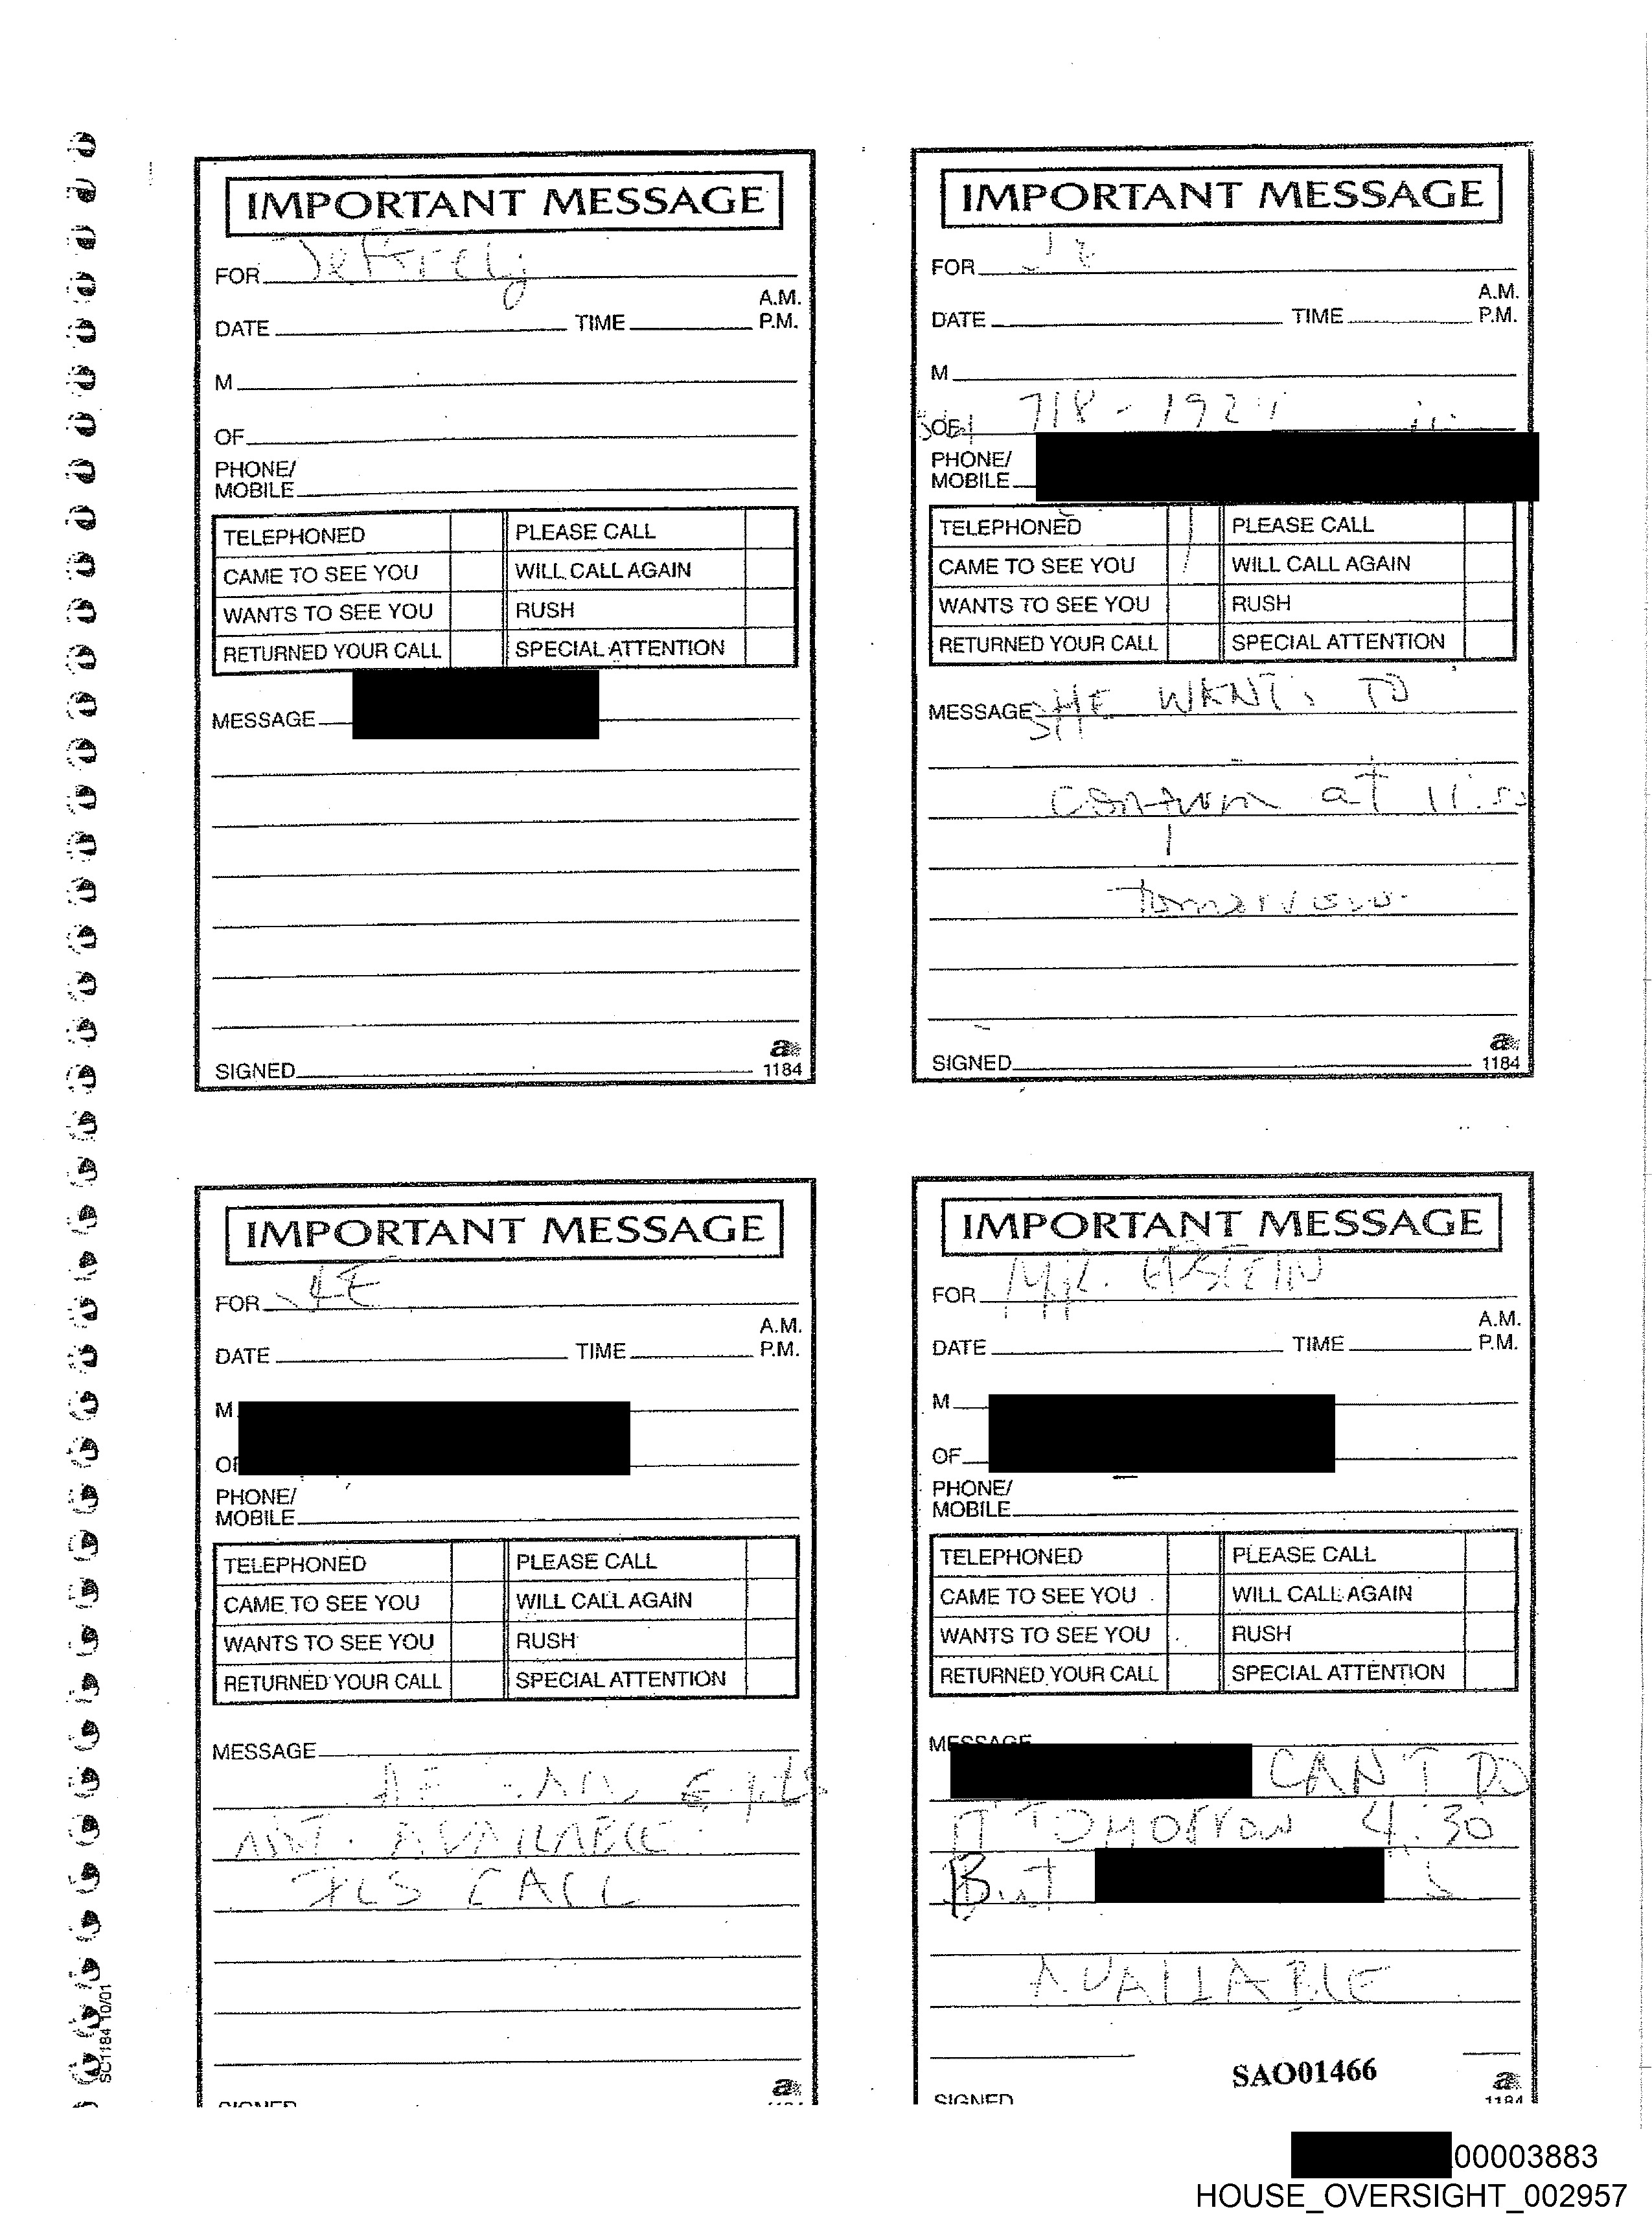 IMPORTANT MESSAGE
FOR Jeffrey
A.M.
DATE TIME P.M.
M
OF
PHONE/
MOBILE
TELEPHONED PLEASE CALL
CAME TO SEE YOU WILL CALL AGAIN
WANTS TO SEE YOU RUSH
RETURNED YOUR CALL SPECIAL ATTENTION
MESSAGE
SIGNED
1184
IMPORTANT MESSAGE
FOR
A.M.
DATE TIME P.M.
M
OF 718-192
PHONE/
MOBILE
TELEPHONED PLEASE CALL
CAME TO SEE YOU WILL CALL AGAIN
WANTS TO SEE YOU RUSH
RETURNED YOUR CALL SPECIAL ATTENTION
MESSAGE TO
confirm at
tomorrow
SIGNED
1184
IMPORTANT MESSAGE
FOR JE
A.M.
DATE TIME P.M.
M
OF
PHONE/
MOBILE
TELEPHONED PLEASE CALL
CAME TO SEE YOU WILL CALL AGAIN
WANTS TO SEE YOU RUSH
RETURNED YOUR CALL SPECIAL ATTENTION
MESSAGE
AVAILABLE
PLS CALL
SIGNED
SC1184 10/01
IMPORTANT MESSAGE
FOR MR. EPSTEIN
A.M.
DATE TIME P.M.
M
OF
PHONE/
MOBILE
TELEPHONED PLEASE CALL
CAME TO SEE YOU WILL CALL AGAIN
WANTS TO SEE YOU RUSH
RETURNED YOUR CALL SPECIAL ATTENTION
MESSAGE
CAN'T DO
IT TOMORROW 4:30
But
AVAILABLE
SAO01466
SIGNED
1184
00003883
HOUSE_OVERSIGHT_002957